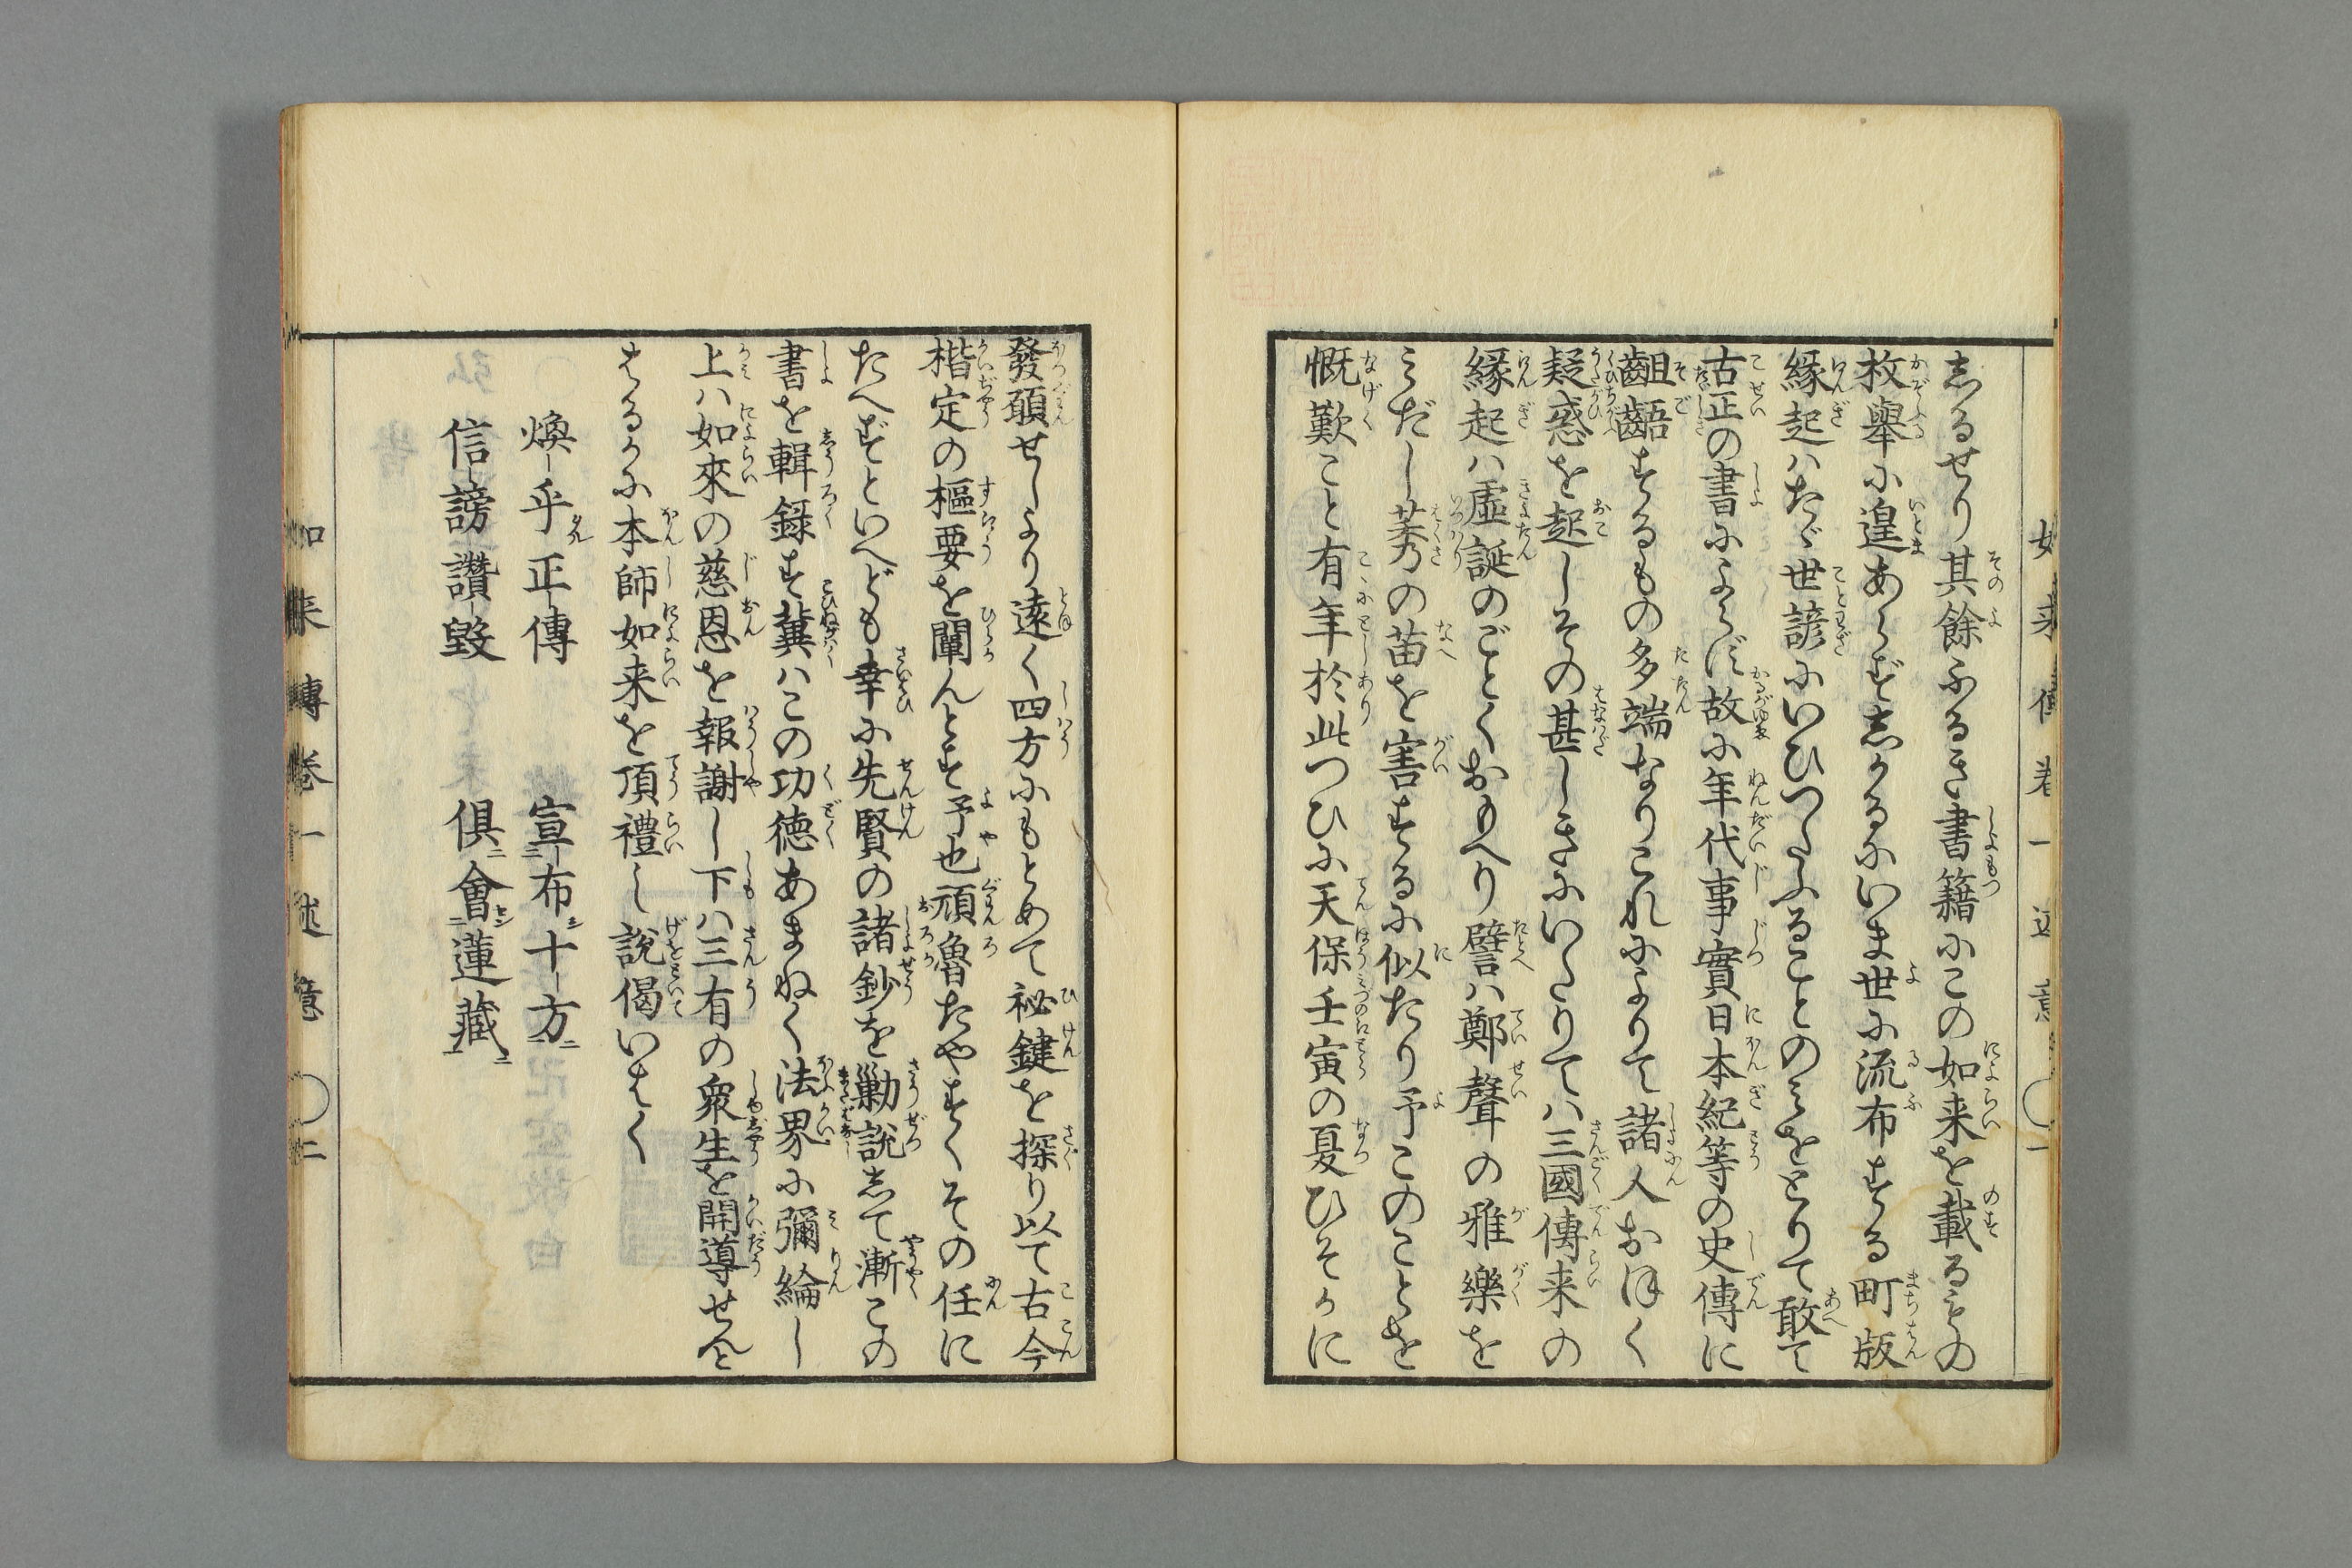 しるせり其餘ふるき書籍にこの如来を載るもの
枚舉に遑あらずしかるにいま世に流布する町版
縁起ハたゞ世諺にいひつたふることのみをとりて敢て
古正の書によらず故に年代事實日本紀等の史傳に
齟齬するもの多端なりこれによりて諸人おほく
疑惑を起しその甚しきにいたりてハ三國傳来の
縁起ハ虚誕のごとくおもへり譬ハ鄭聲の雅樂を
みだし莠の苗を害するに似たり予このことを
慨歎こと有年於此つひに天保壬寅の夏ひそかに
發願せしより遠く四方にもとめて祕鍵を探り以て古今
楷定の樞要を闡んとす予也頑魯たやすくその任に
たへずといへども幸に先賢の諸鈔を勦説して漸この
書を輯録す冀ハこの功徳あまねく法界に彌綸し
上ハ如來の慈恩を報謝し下ハ三有の衆生を開導せんと
はるかに本師如来を頂禮し説偈いはく
煥乎正傳　宣布十方
信謗讚毀　倶會蓮藏
如来傳巻一述意　〇二